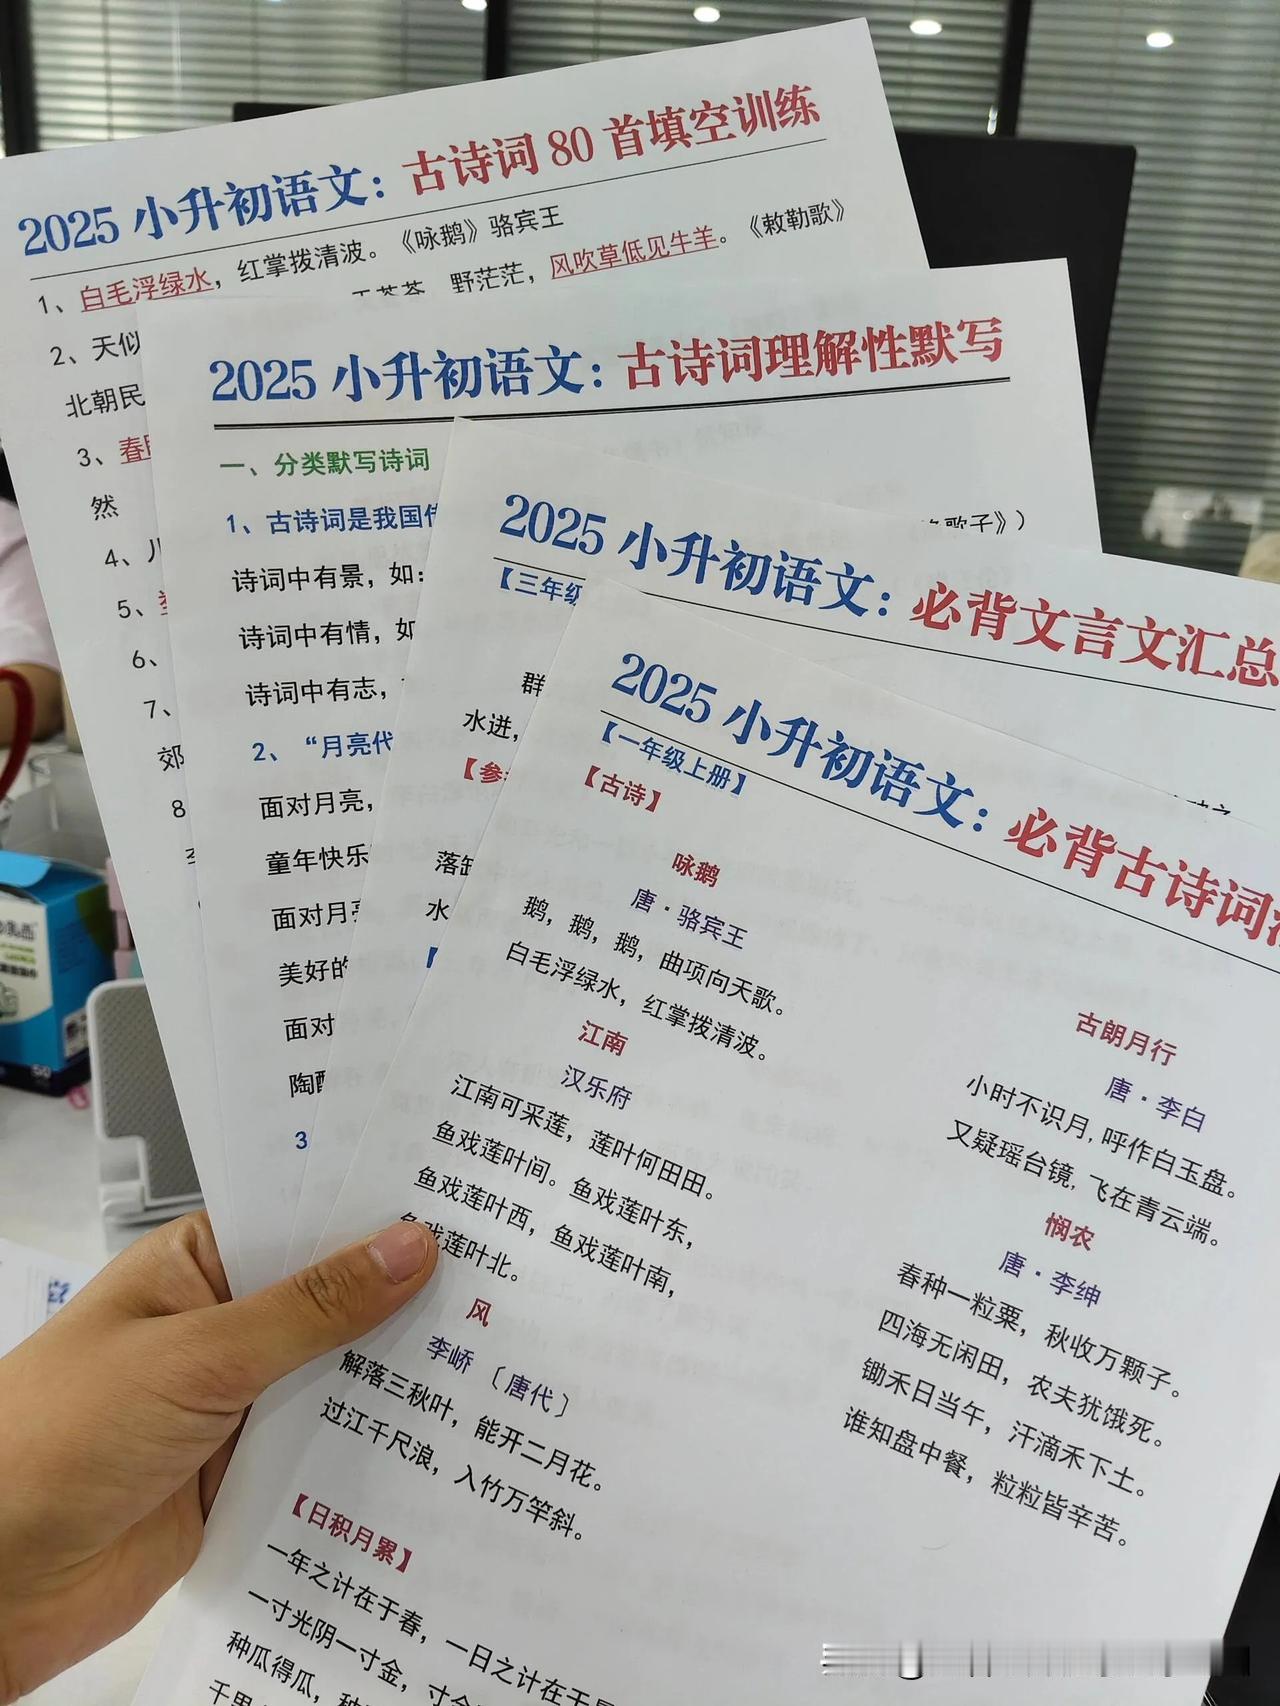 2025 小升初语文：古诗词 80 首填空训练
1、白毛浮绿水，红掌拨清波。《咏鹅》骆宾王
2、天似
野茫茫，风吹草低见牛羊。《敕勒歌》
北朝民
3、春
然
4、儿
5、
6、
7、
郊
8
2025 小升初语文：古诗词理解性默写
一、分类默写诗词
1、古诗词是我国
歌子》）
诗词中有景，如：
诗词中有情，如
诗词中有志，
2、“月亮代
面对月亮，
童年快乐
面对月
美好的
面对
陶
3
2025 小升初语文：必背文言文汇总
【三年级
群
水进，
【参
落
水
【
2025 小升初语文：必背古诗词
【一年级上册】
【古诗】
咏鹅
唐·骆宾王
鹅，鹅，鹅，曲项向天歌。
白毛浮绿水，红掌拨清波。
江南
汉乐府
江南可采莲，莲叶何田田。
鱼戏莲叶间。鱼戏莲叶东，
鱼戏莲叶西，鱼戏莲叶南，
鱼戏莲叶北。
风
李峤〔唐代〕
解落三秋叶，能开二月花。
过江千尺浪，入竹万竿斜。
【日积月累】
一年之计在于春，一日之计在于
一寸光阴一寸金，寸金
种瓜得瓜，种
千里
古朗月行
唐·李白
小时不识月，呼作白玉盘。
又疑瑶台镜，飞在青云端。
悯农
唐·李绅
春种一粒粟，秋收万颗子。
四海无闲田，农夫犹饿死。
锄禾日当午，汗滴禾下土。
谁知盘中餐，粒粒皆辛苦。